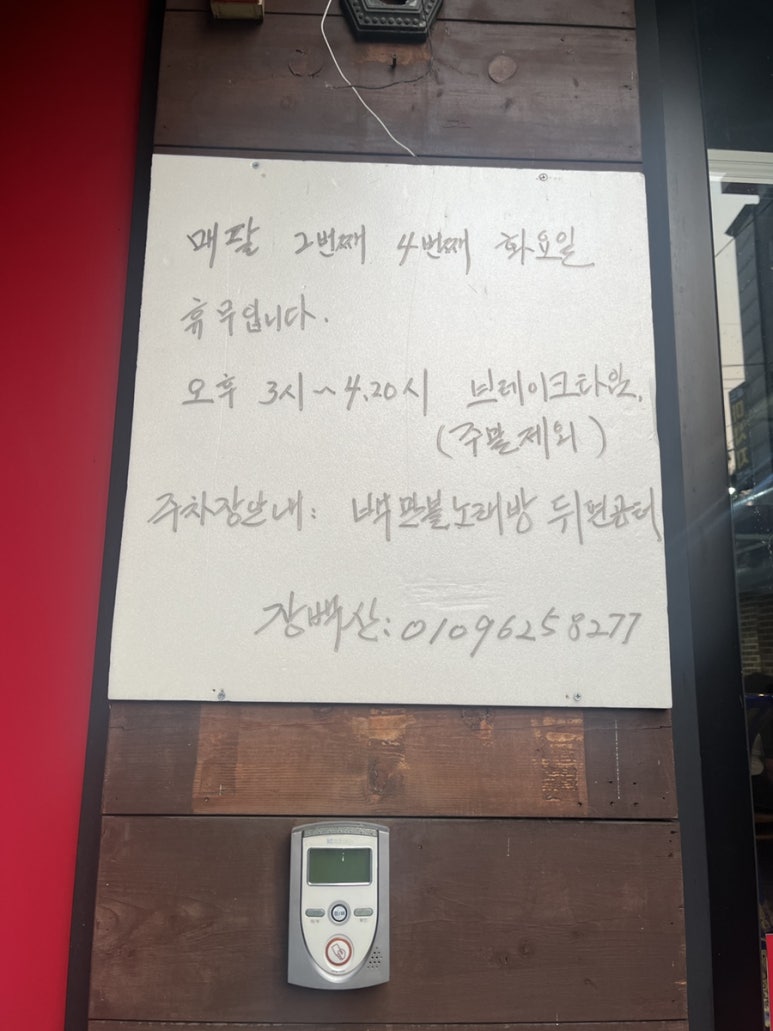 매달 2번째 4번째 화요일
휴무입니다.
오후 3시~4.20시 브레이크타임.
(주말제외)
주차장안내: 백만불노래방 뒤편공터
장백산: 01096258277